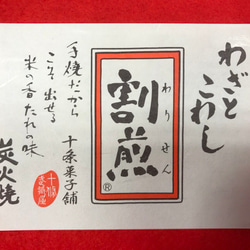 わざと
こわし
割煎
わりせん
®
十条菓子舗
手焼だから
こそ出せる
米の香たれの味
炭火焼